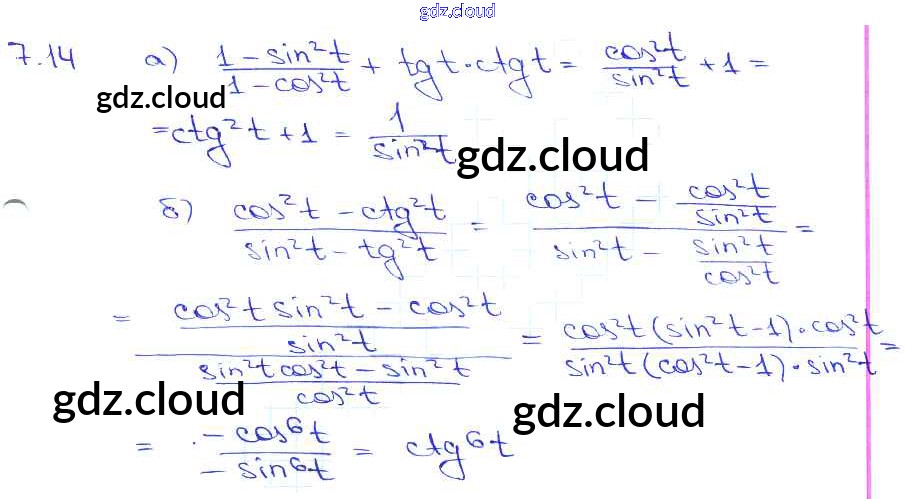 gdz.cloud
7.14 а) \frac{1-sin²t}{1-cos²t} + tgt·ctgt = \frac{cos²t}{sin²t} + 1 =
gdz.cloud
= ctg²t + 1 = \frac{1}{sin²t}
gdz.cloud
б) \frac{cos²t - ctg²t}{sin²t - tg²t} = \frac{cos²t - \frac{cos²t}{sin²t}}{sin²t - \frac{sin²t}{cos²t}} =
= \frac{\frac{cos²t sin²t - cos²t}{sin²t}}{\frac{sin²t cos²t - sin²t}{cos²t}} = \frac{cos²t(sin²t-1)·cos²t}{sin²t(cos²t-1)·sin²t} =
gdz.cloud gdz.cloud
= \frac{-cos⁶t}{-sin⁶t} = ctg⁶t